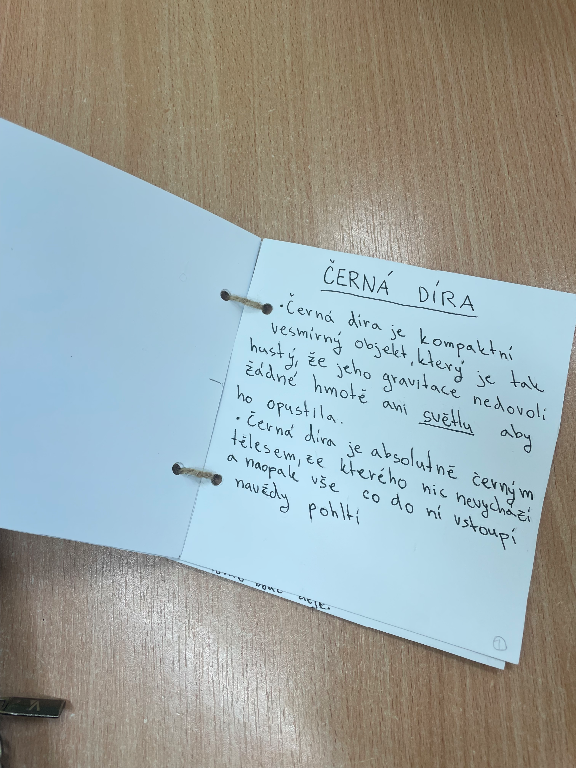 ČERNÁ DÍRA
• Černá díra je kompaktní
vesmírný objekt, který je tak
hustý, že jeho gravitace nedovolí
žádné hmotě ani světlu aby
ho opustila.
• Černá díra je absolutně černým
tělesem, ze kterého nic nevychází
a naopak vše co do ní vstoupí
navědy pohltí
1